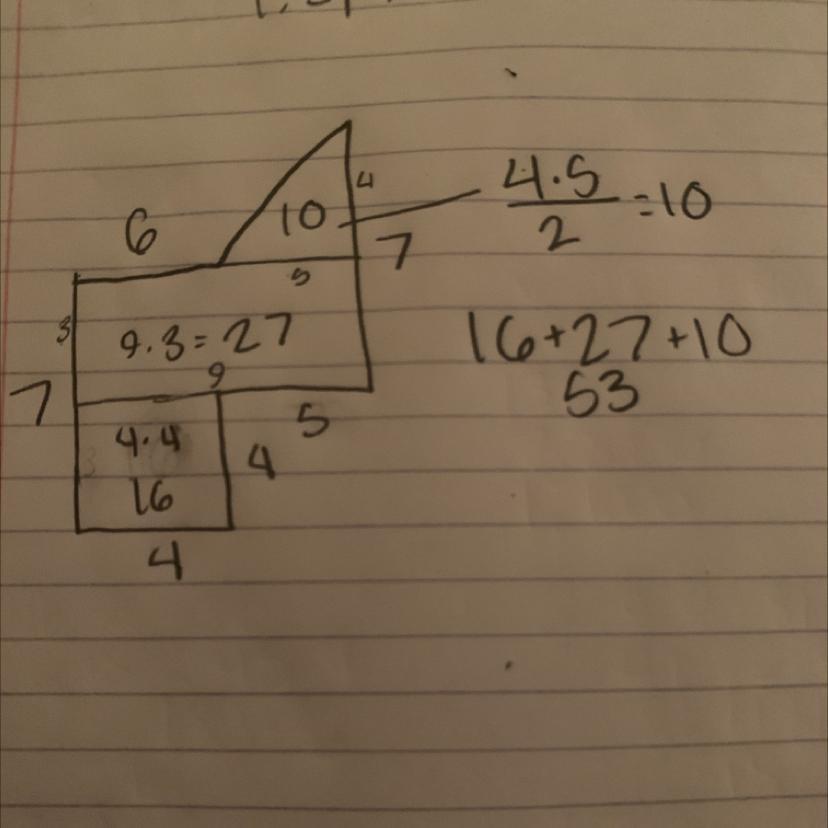 4
4·5
10
2
=10
6
7
5
3
9·3=27
16+27+10
9
53
7
5
4·4
4
16
4